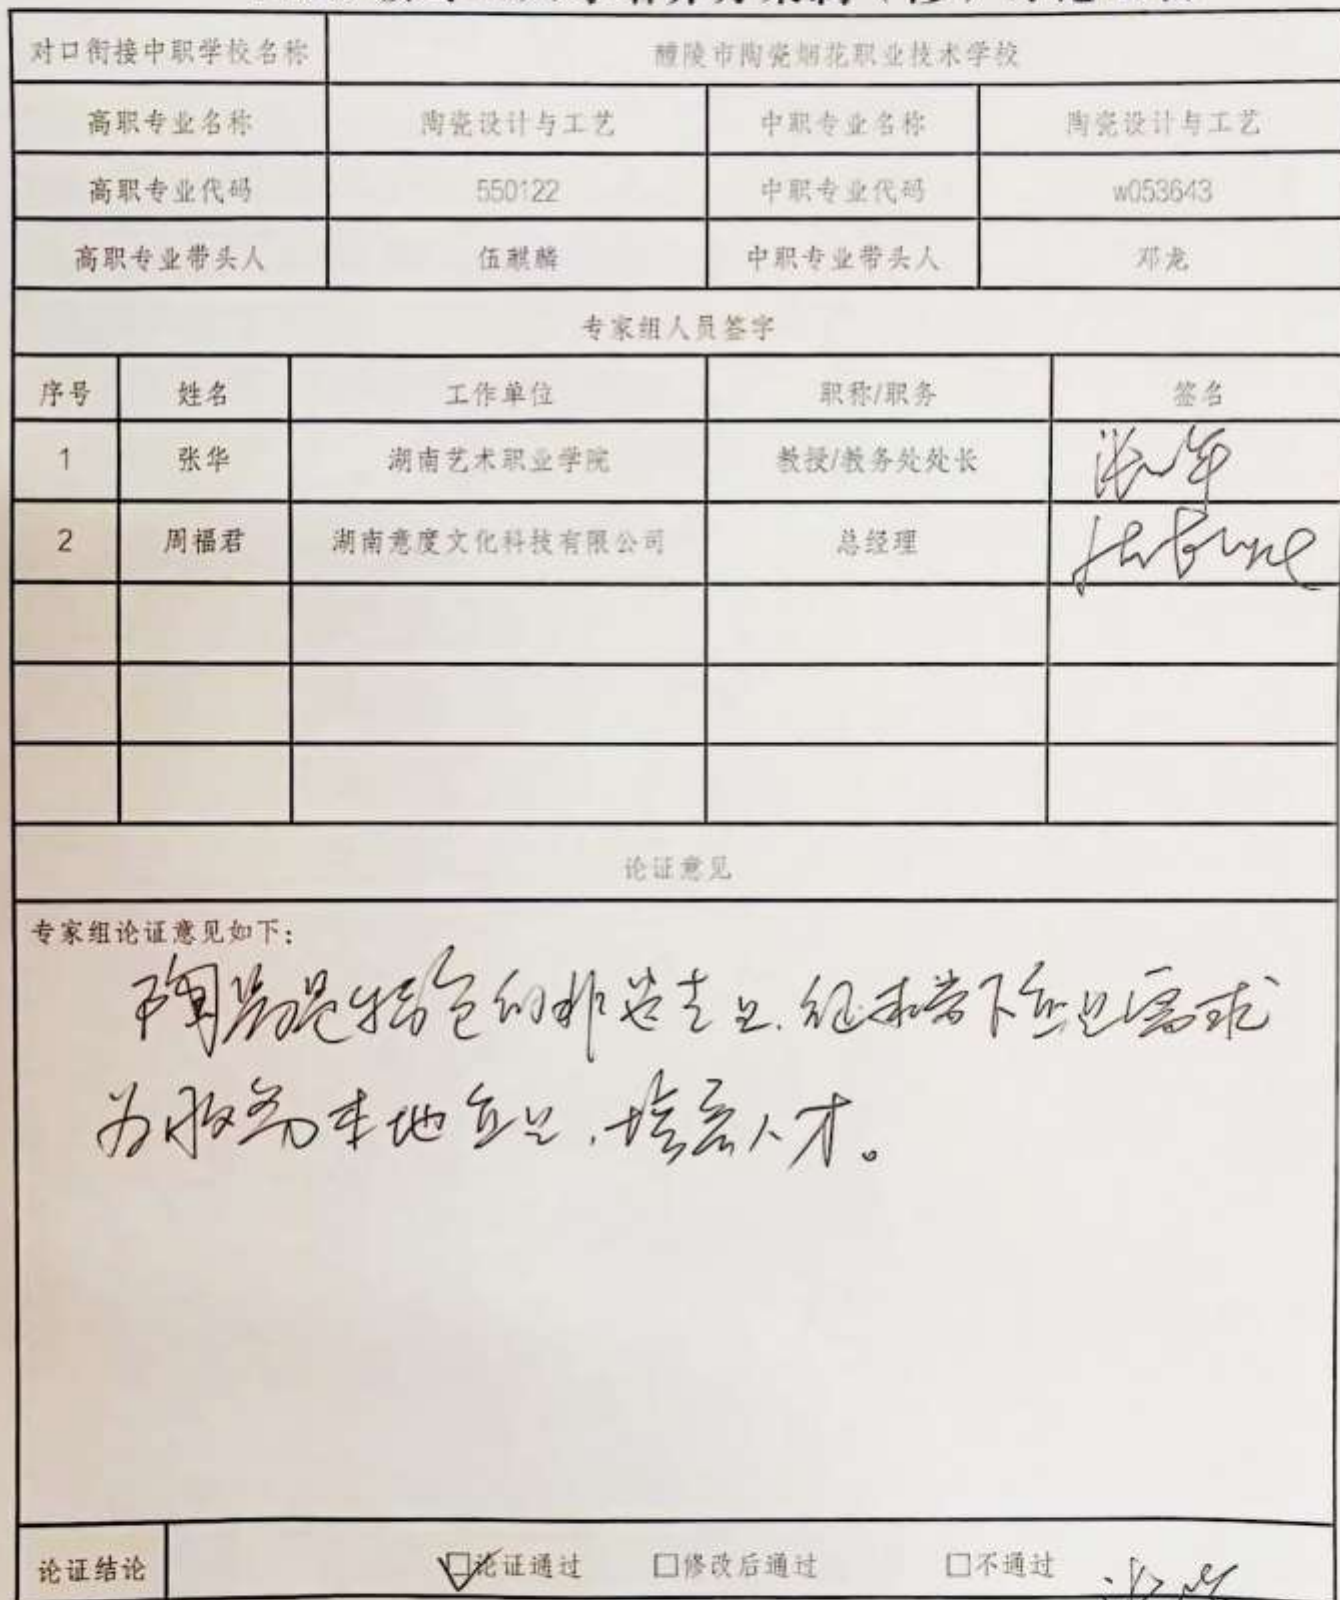 对口衔接中职学校名称 醴陵市陶瓷烟花职业技术学校
高职专业名称 陶瓷设计与工艺 中职专业名称 陶瓷设计与工艺
高职专业代码 550122 中职专业代码 w053643
高职专业带头人 伍麒麟 中职专业带头人 邓龙
专家组人员签字
序号 姓名 工作单位 职称/职务 签名
1 张华 湖南艺术职业学院 教授/教务处处长 张华
2 周福君 湖南意度文化科技有限公司 总经理
论证意见
专家组论证意见如下:
陶瓷是特色的非遗专业,
为服务本地企业,培养人才。
论证结论 □论证通过 □修改后通过 □不通过